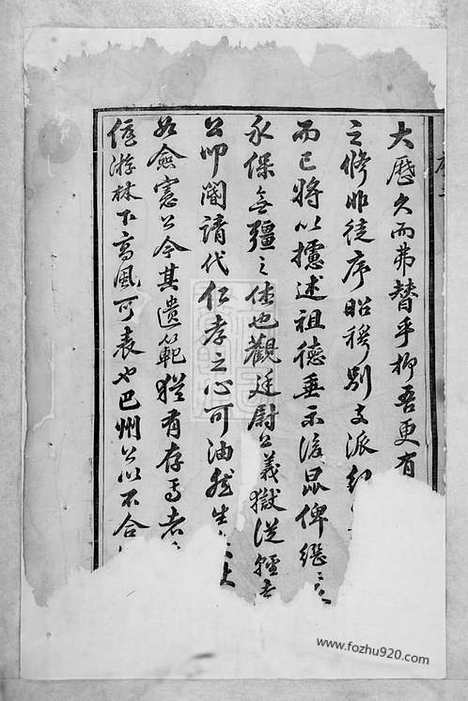 大歷久而弗替乎抑吾更有
之修非徒序昭穆別支派紀
而已將以攄述祖德垂示後昆俾繼
永保無疆之休也觀廷尉公義獄從輕
公叩閽請代仁孝之心可油然生
公令其遺範猶有存焉者
游林下高風可表也巴州公以不合
www.fozhu920.com